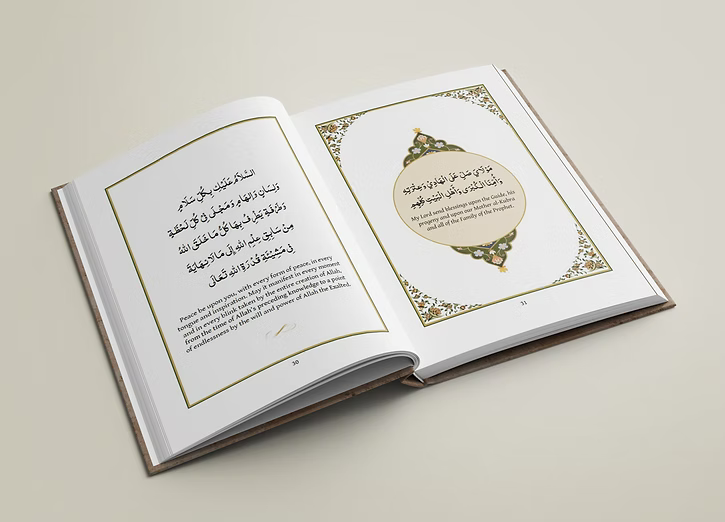 السَّلَامُ عَلَيْكَ بِكُلِّ سَلَامٍ
وَلِسَانٍ وَإِلْهَامٍ وَمَجْلَى فِي كُلِّ لَحْظَةٍ
وَطَرْفَةٍ يَطْرِفُ بِهَا كُلُّ مَا خَلَقَ اللهُ
مِنْ سَابِقِ عِلْمِ اللهِ إِلَى مَا لَا نِهَايَةَ
فِي مَشِيئَةِ قُدْرَةِ اللهِ تَعَالَى
Peace be upon you, with every form of peace, in every
tongue and inspiration. May it manifest in every moment
and in every blink taken by the entire creation of Allah,
from the time of Allah's preceding knowledge to a point
of endlessness by the will and power of Allah the Exalted.
30
مَوْلَايَ صَلِّ عَلَى الْهَادِي وَعِتْرَتِهِ
وَأُمِّنَا الْكُبْرَى وَأَهْلِ الْبَيْتِ كُلِّهِمِ
My Lord send blessings upon the Guide, his
progeny and upon our Mother al-Kubra
and all of the Family of the Prophet.
31